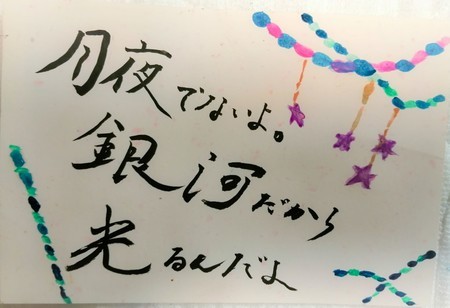 月夜でないよ。
銀河だから
光るんだよ